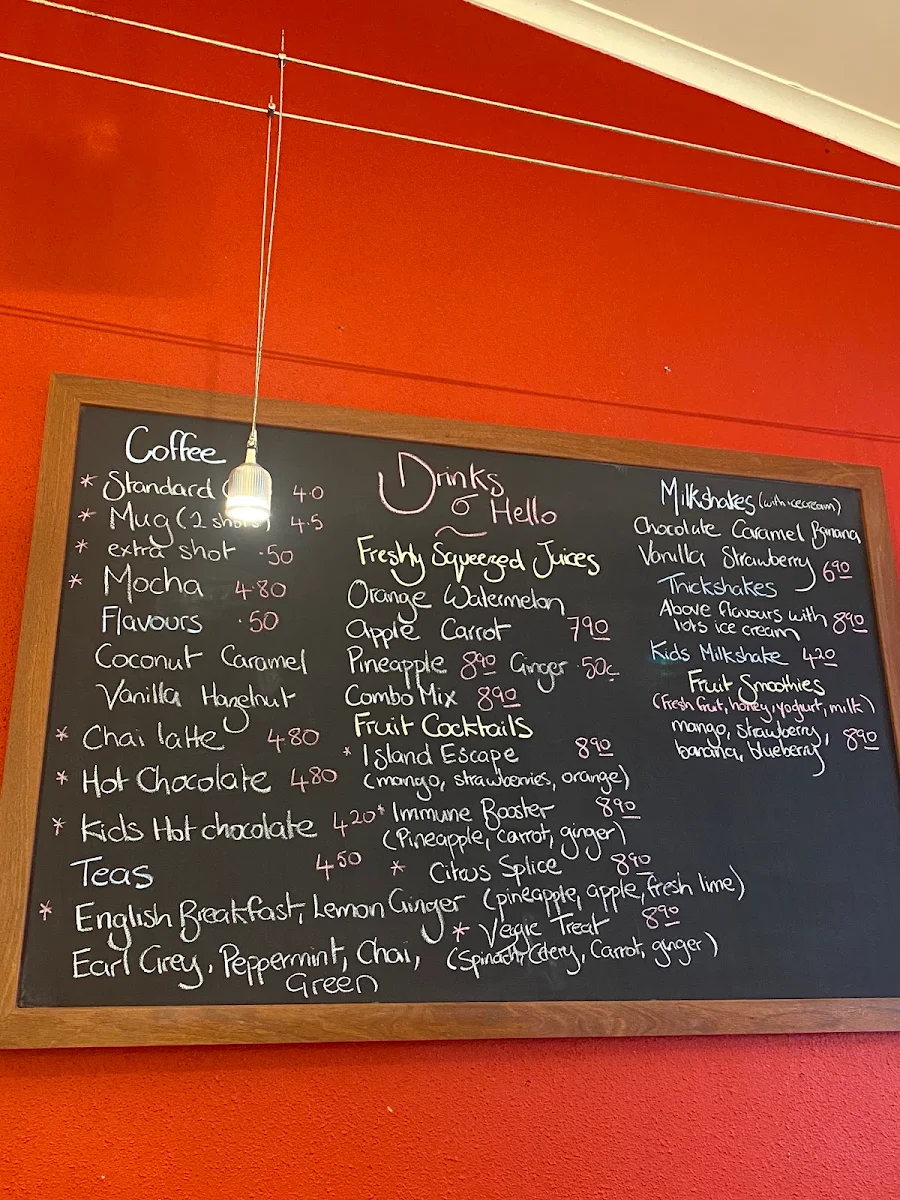 Coffee
* Standard 4.0
* Mug (2 shots) 4.5
* extra shot .50
* Mocha 4.80
Flavours .50
Coconut Caramel
Vanilla Hazelnut
* Chai latte 480
* Hot Chocolate 480
* Kids Hot chocolate 420
Teas 450
* English Breakfast, Lemon Ginger
Earl Grey, Peppermint, Chai,
Green
Drinks
Hello
Freshly Squeezed Juices
Orange Watermelon
Apple Carrot 790
Pineapple 890 Ginger .50c
Combo Mix 890
Fruit Cocktails
* Island Escape 890
(mango, strawberries, orange)
* Immune Booster 890
(Pineapple, carrot, ginger)
* Citrus Splice 890
(pineapple, apple, fresh lime)
* Vegie Treat 890
(Spinach, Celery, Carrot, ginger)
Milkshakes (with icecream)
Chocolate Caramel Banana
Vanilla Strawberry 690
Thickshakes
Above flavours with
lots ice cream 890
Kids Milkshake 420
Fruit Smoothies
(fresh fruit, honey, yogurt, milk)
mango, strawberry,
banana, blueberry 890